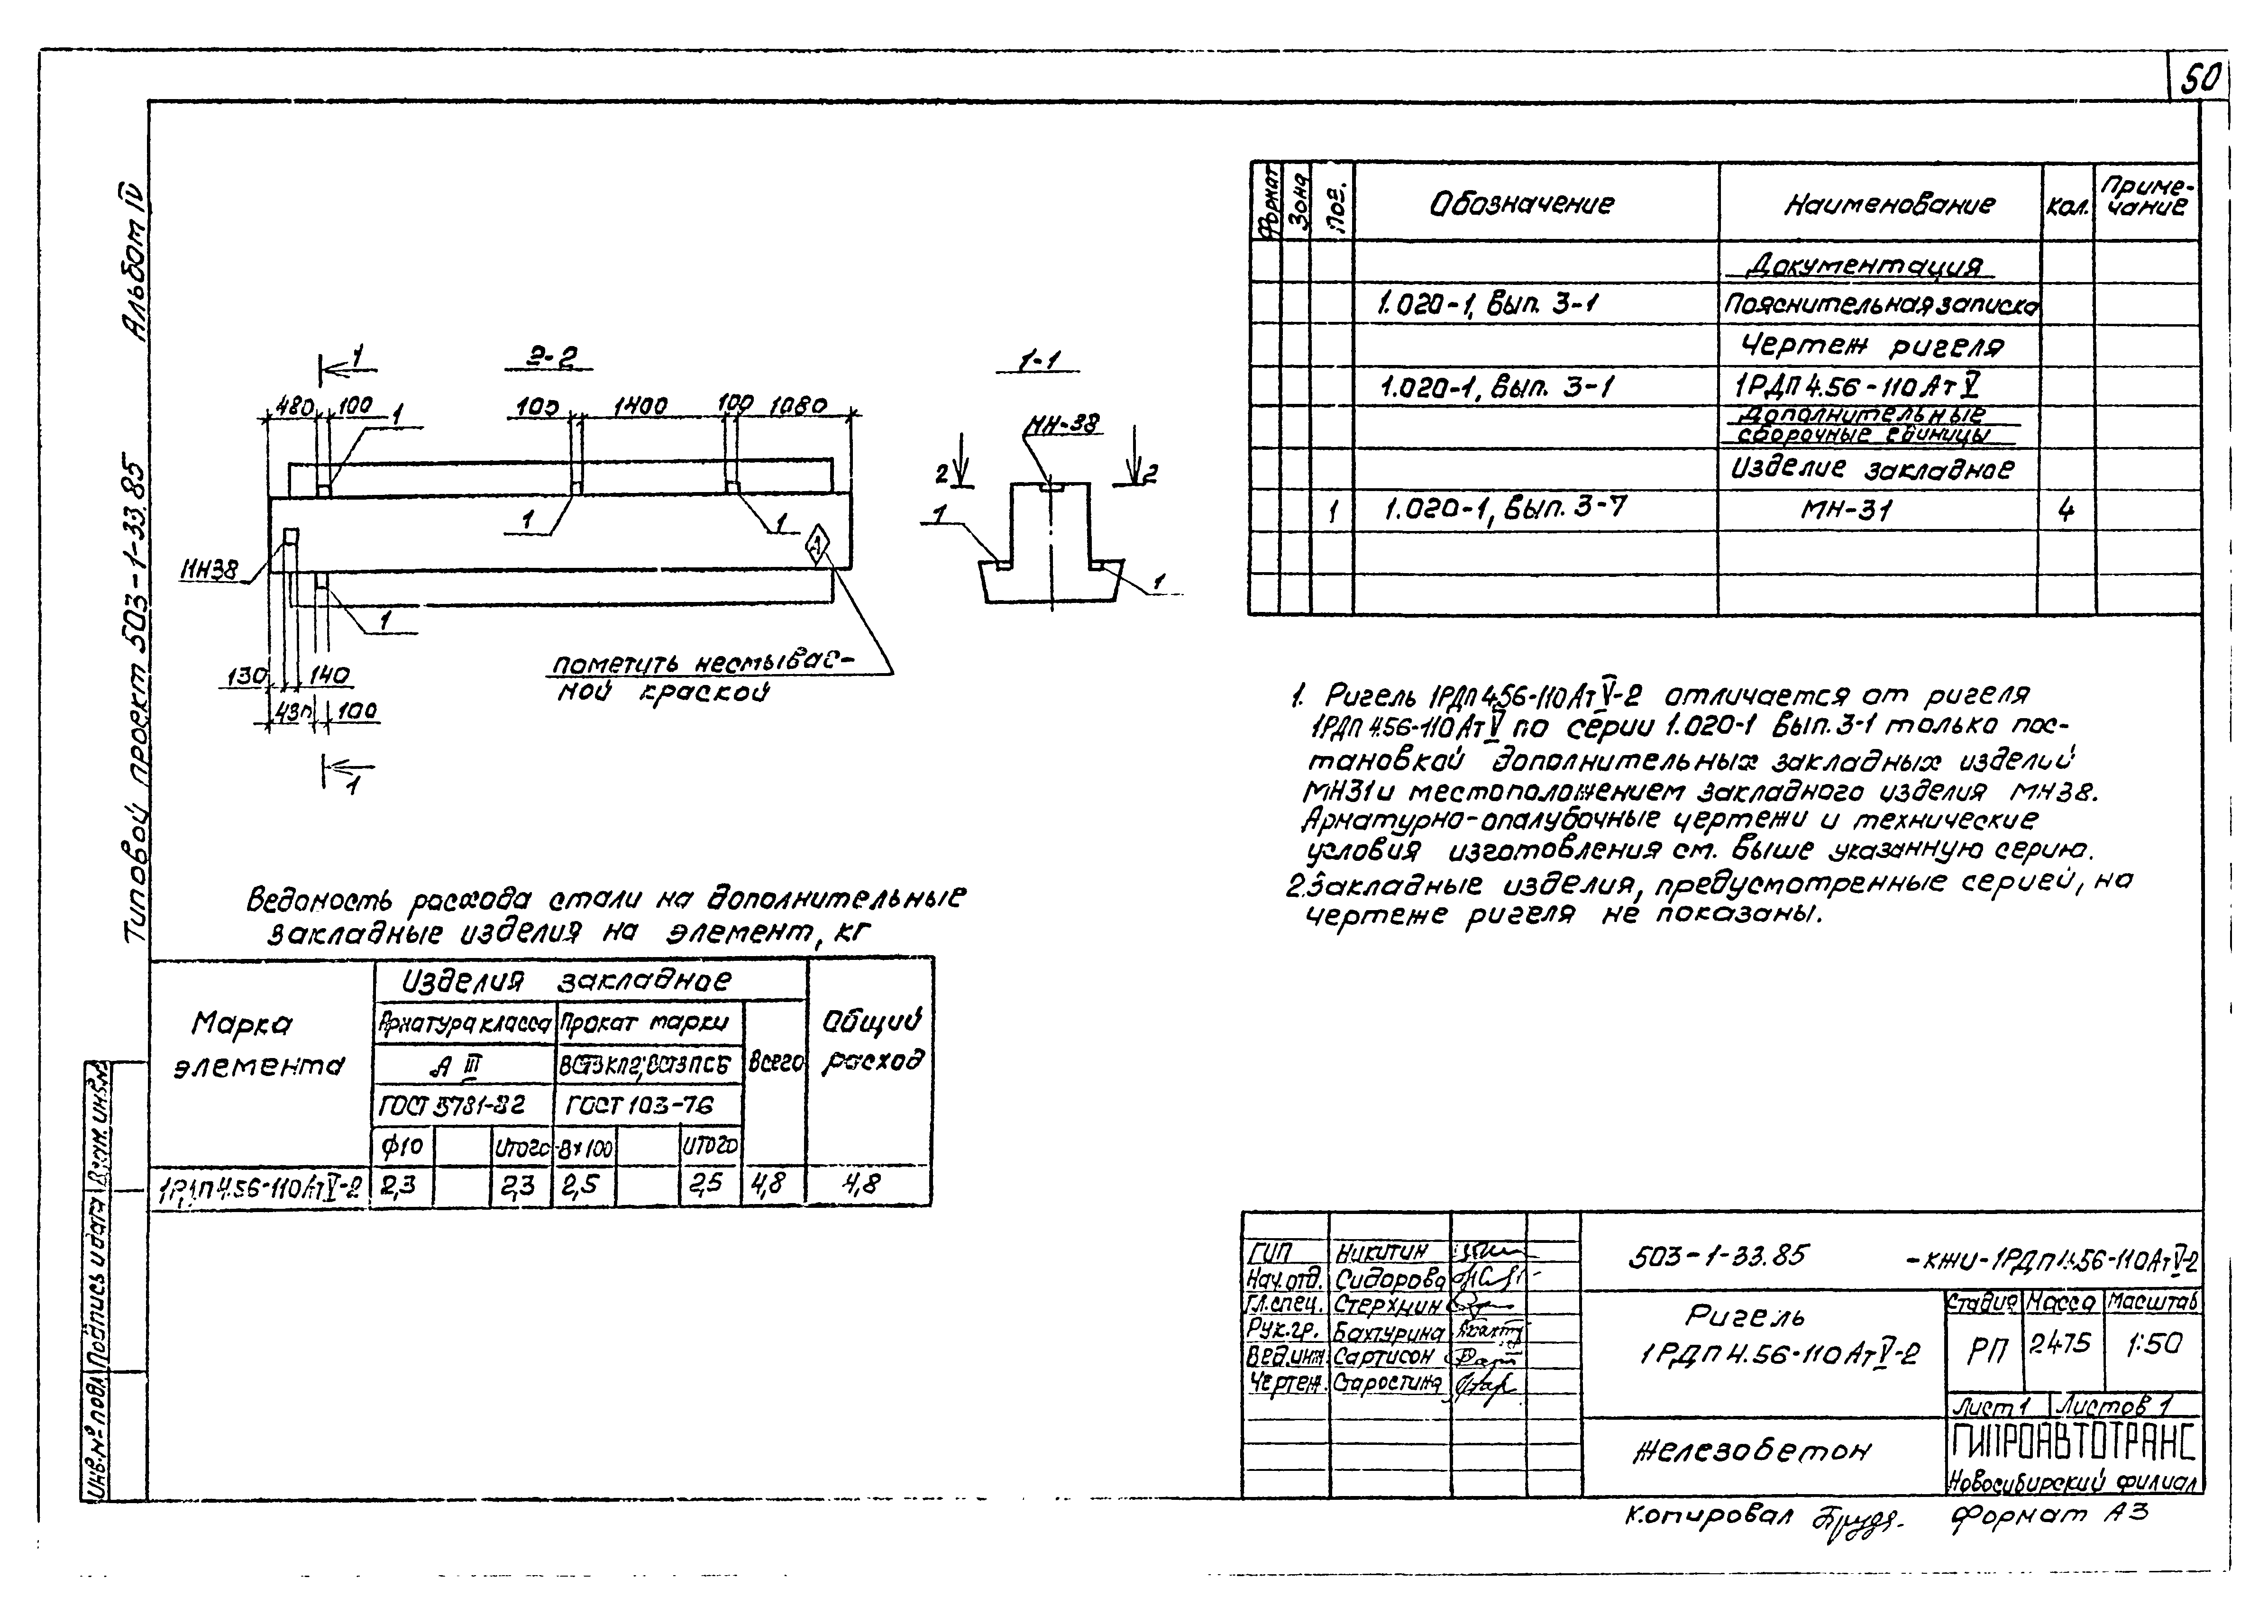 50
Альбом IV
Типовой проект 503-1-33.85
Инв.№ подл.
Подпись и дата
Взам. инв.№
2-2
1
480 100 1
100 1400 100 1080
1
1
МН38
1
130 140
430 100
1
пометить несмывае-
мой краской
1-1
МН-38
2 2
1
1
Формат Зона Поз. Обозначение Наименование Кол. Приме-
чание
Документация
1.020-1, Вып. 3-1 Пояснительная записка
Чертеж ригеля
1.020-1, Вып. 3-1 1РДП 4.56-110АтV
Дополнительные
сборочные единицы
Изделие закладное
1 1.020-1, Вып. 3-7 МН-31 4
1. Ригель 1РДП 4.56-110АтV-2 отличается от ригеля
1РДП 4.56-110АтV по серии 1.020-1 Вып. 3-1 только пос-
тановкой дополнительных закладных изделий
МН31 и местоположением закладного изделия МН38.
Арматурно-опалубочные чертежи и технические
условия изготовления см. выше указанную серию.
2. Закладные изделия, предусмотренные серией, на
чертеже ригеля не показаны.
Ведомость расхода стали на дополнительные
закладные изделия на элемент, кг
Марка
элемента
Изделия закладное
Общий
расход
Арматура класса Прокат марки Всего
А III ВСТ3КП2; ВСТ3ПС6
ГОСТ 5781-82 ГОСТ 103-76
Ф10 Итого -8×100 Итого
1РДП 4.56-110АтV-2 2,3 2,3 2,5 2,5 4,8 4,8
ГИП Никитин
Нач.отд. Сидорова
Гл.спец. Стерхнин
Рук.гр. Бахтурина
Вед.инж. Сартисон
Чертеж. Старостина
503-1-33.85 -КЖИ-1РДП 4.56-110АтV-2
Ригель
1РДП 4.56-110АтV-2
Стадия Масса Масштаб
РП 2475 1:50
Лист 1 Листов 1
Железобетон
ГИПРОАВТОТРАНС
Новосибирский филиал
Копировал Формат А3